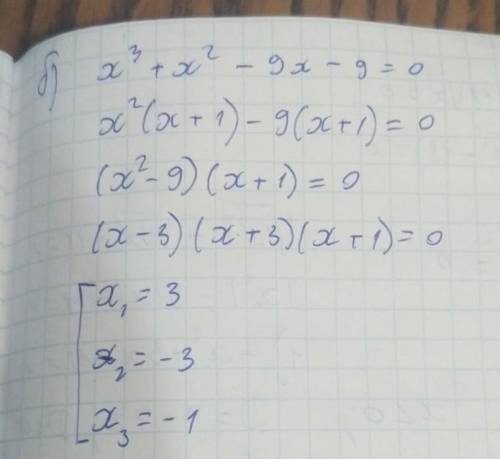 б) x³ + x² - 9x - 9 = 0
x²(x + 1) - 9(x + 1) = 0
(x² - 9)(x + 1) = 0
(x - 3)(x + 3)(x + 1) = 0
x₁ = 3
x₂ = -3
x₃ = -1